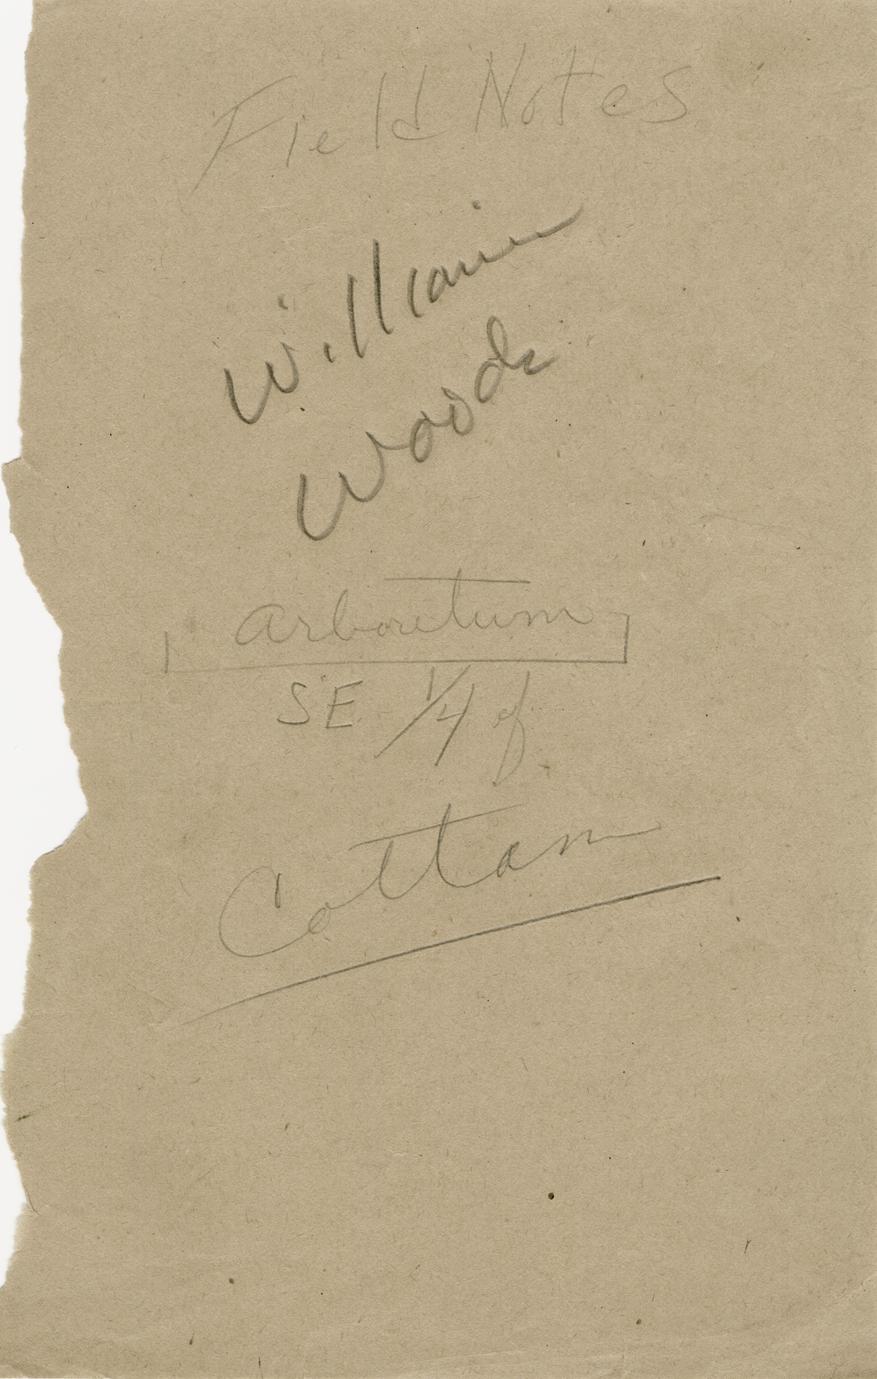 Field Notes
William
Woods
Arboretum
SE 1/4 of
Cottam